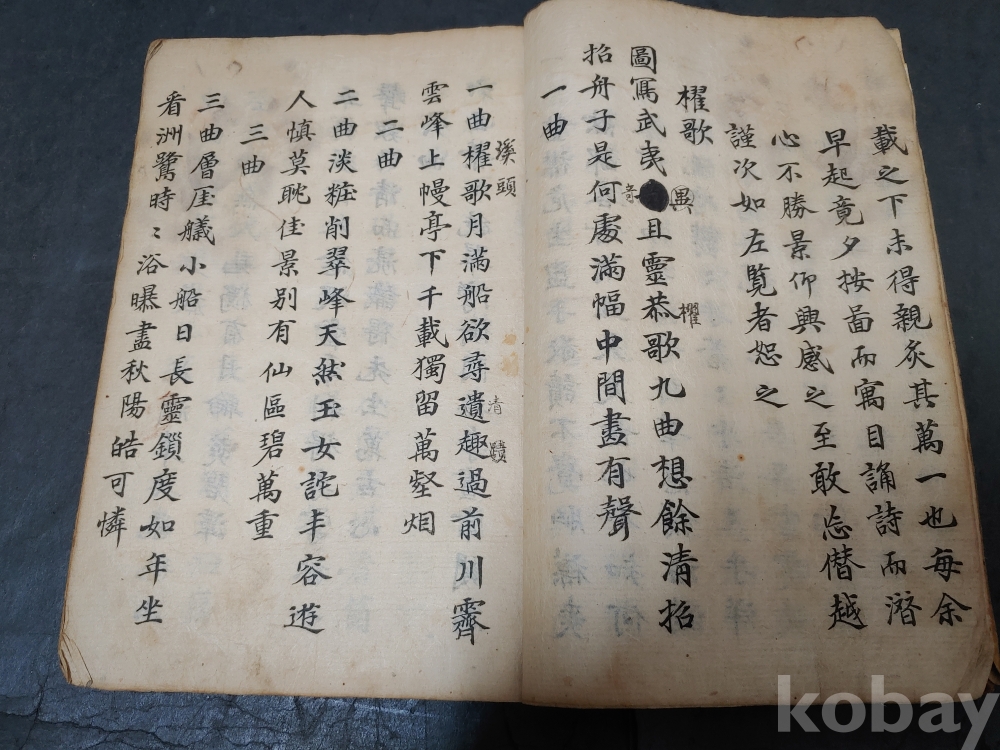 載之下未得親炙其萬一也每余
早起竟夕按啚而寓目誦詩而潛
心不勝景仰興感之至敢忘僣越
謹次如左覽者恕之
櫂歌
圖寫武夷
異
奇
且靈恭歌九曲想餘清招
櫂
招舟子是何處滿幅中間畵有聲
一曲
溪頭
清
一曲櫂歌月滿船欲尋遺趣過前川霽
雲峰上幔亭下千載獨留萬壑烟
二曲
二曲淡粧削翠峰天然玉女詫丰容遊
人慎莫耽佳景別有仙區碧萬重
三曲
三曲層厓艤小船日長靈鎖度如年坐
看洲鷺時〻浴曝盡秋陽皓可憐
kobay